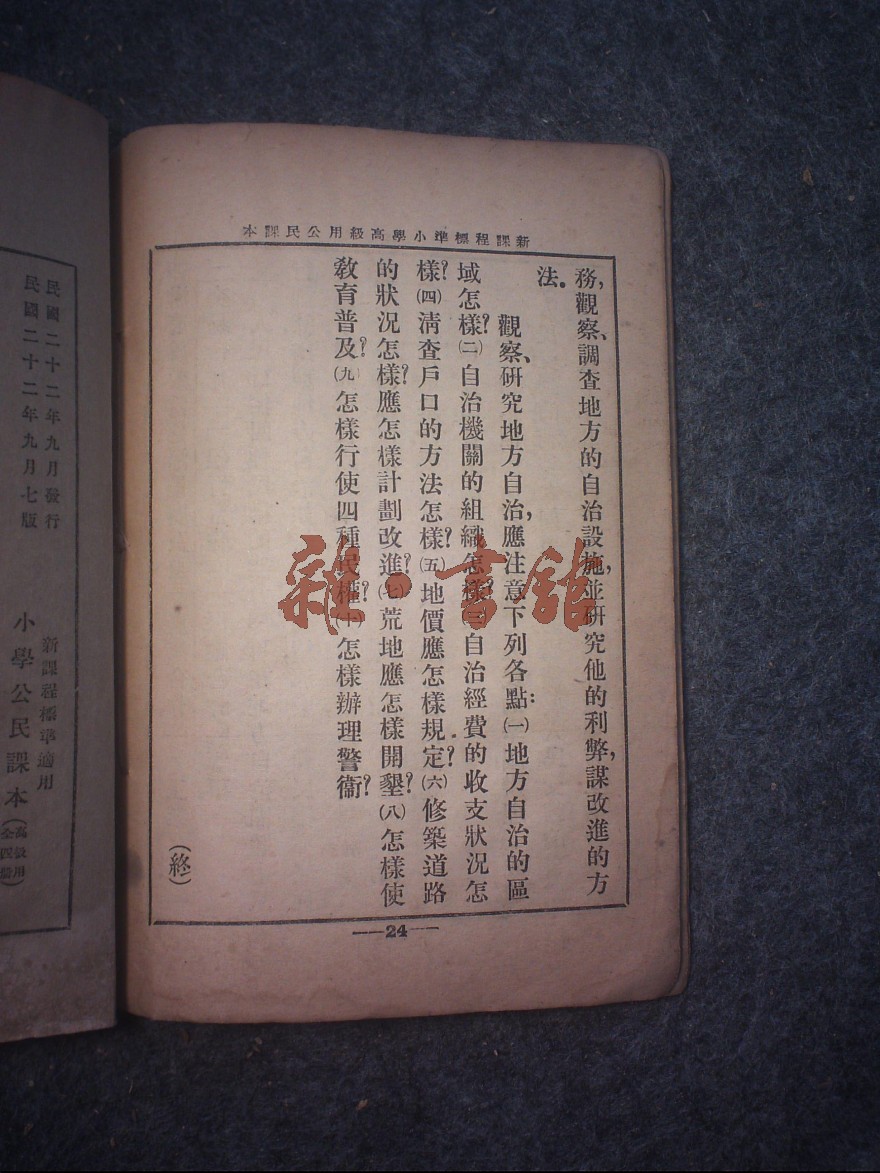 新課程標準小學高級用公民課本
務，觀察、調查地方的自治設施，並研究他的利弊，謀改進的方
法。
觀察、研究地方自治，應注意下列各點：㈠地方自治的區
域怎樣？㈡自治機關的組織怎樣？㈢自治經費的收支狀況怎
樣？㈣清查戶口的方法怎樣？㈤地價應怎樣規定？㈥修築道路
的狀況怎樣？應怎樣計劃改進？㈦荒地應怎樣開墾？㈧怎樣使
教育普及？㈨怎樣行使四種民權？㈩怎樣辦理警衞？
（終）
—24—
民國二十二年九月發行
民國二十二年九月七版
新課程標準適用
小學公民課本
（高級用
全四冊）
雜·書館